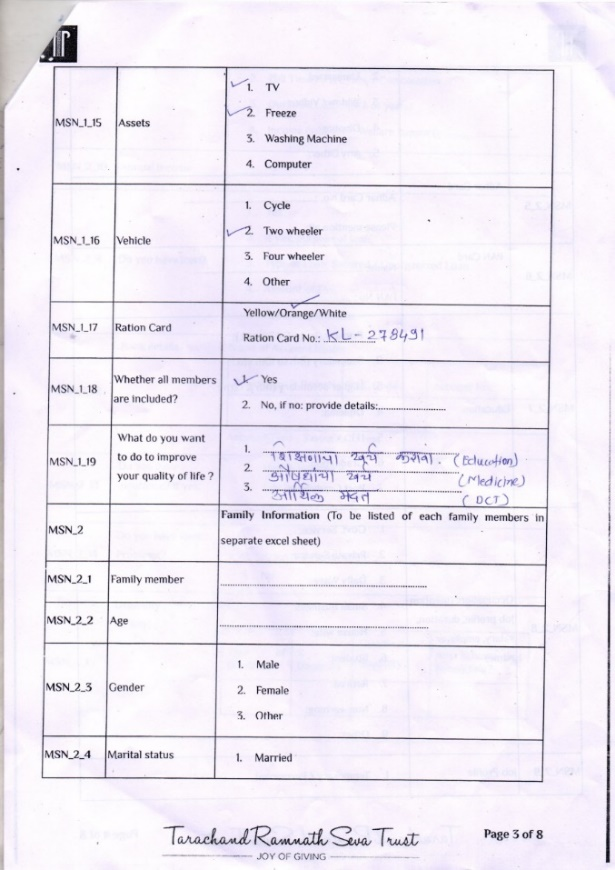 MSN_1_15 Assets
1. TV
2. Freeze
3. Washing Machine
4. Computer
MSN_1_16 Vehicle
1. Cycle
2. Two wheeler
3. Four wheeler
4. Other
MSN_1_17 Ration Card
Yellow/Orange/White
Ration Card No.: KL-278491
MSN_1_18 Whether all members are included?
1. Yes
2. No, if no: provide details:
MSN_1_19 What do you want to do to improve your quality of life ?
1. शिक्षणाचा खर्च करावा. (Education)
2. औषधांचा खर्च (Medicine)
3. आर्थिक मदत (DCT)
MSN_2
Family Information (To be listed of each family members in
separate excel sheet)
MSN_2_1 Family member
MSN_2_2 Age
MSN_2_3 Gender
1. Male
2. Female
3. Other
MSN_2_4 Marital status
1. Married
Tarachand Ramnath Seva Trust
JOY OF GIVING
Page 3 of 8